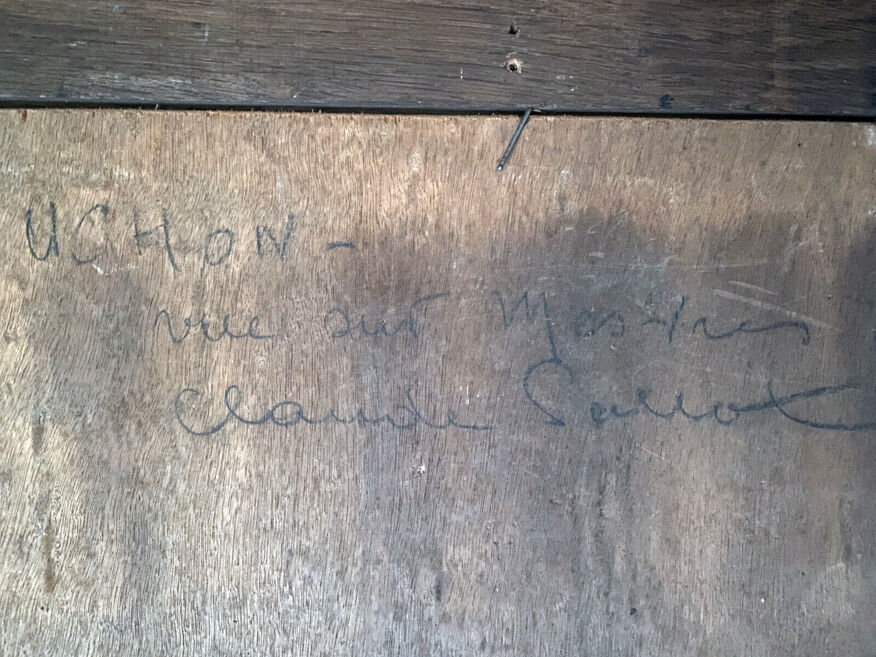 UCHON -
vue sur Mesvres
Claude Sallot